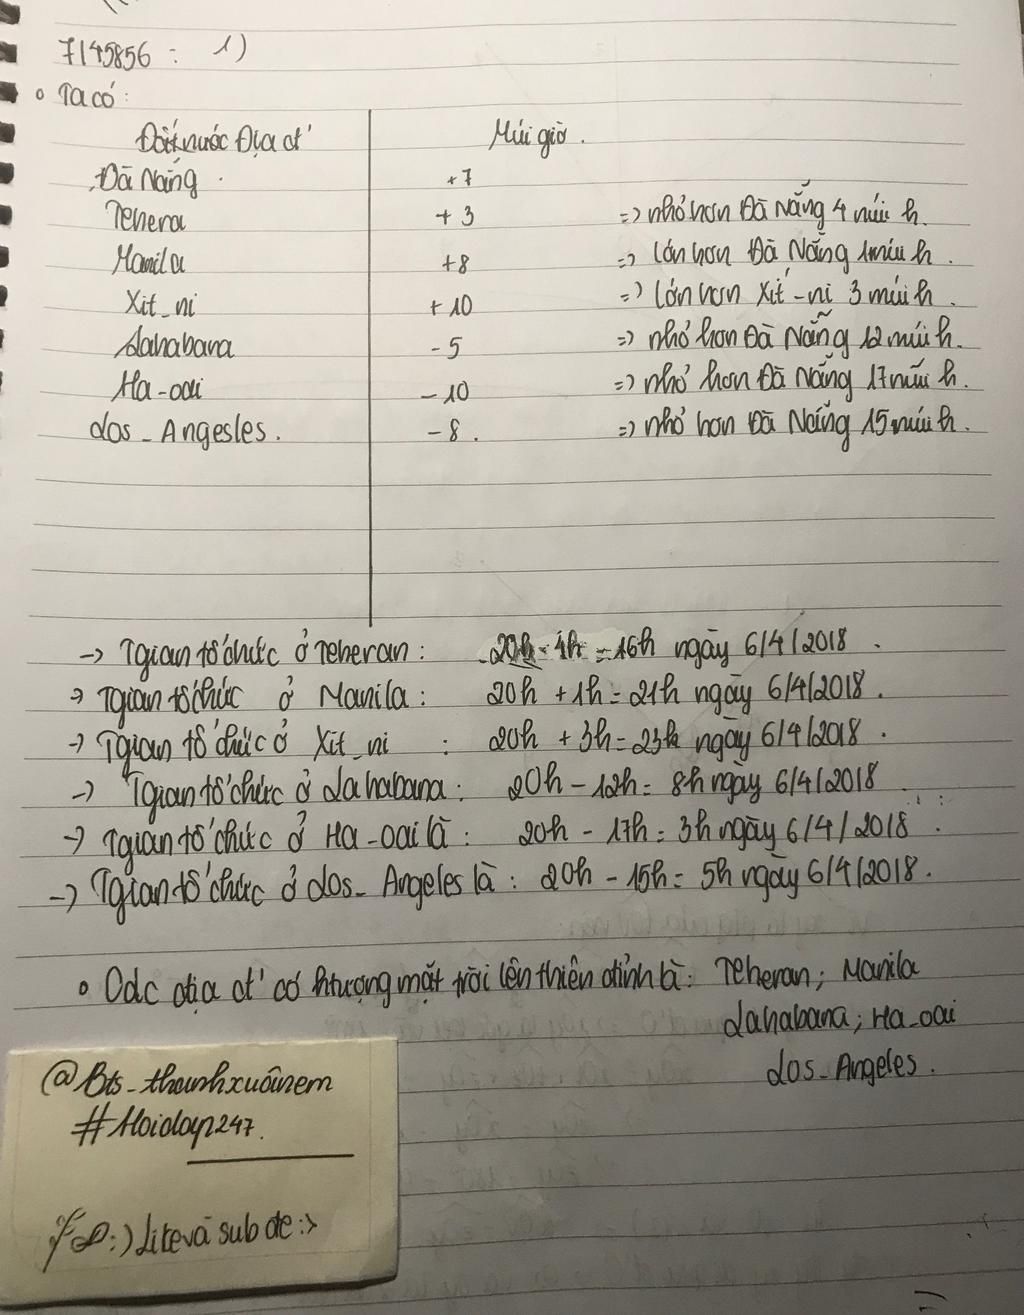 7145856 : 1)
Ta có :
Đất nước Địa đ' Múi giờ .
Đà Nẵng . +7
Tehera +3 => nhỏ hơn Đà Nẵng 4 múi h.
Manila +8 => lớn hơn Đà Nẵng 1 múi h .
Xit_ni +10 => lớn hơn Xit-ni 3 múi h .
Lahabana -5 => nhỏ hơn Đà Nẵng 12 múi h.
Ha-oai -10 => nhỏ hơn Đà Nẵng 17 múi h.
Los_Angesles. -8 . => nhỏ hơn Đà Nẵng 15 múi h.
-> Tgian tổ chức ở Teheran : 20h - 4h = 16h ngày 6/4/2018 .
-> Tgian tổ chức ở Manila : 20h + 1h = 21h ngày 6/4/2018 .
-> Tgian tổ chức ở Xit_ni : 20h + 3h = 23h ngày 6/4/2018 .
-> Tgian tổ chức ở Lahabana : 20h - 12h = 8h ngày 6/4/2018
-> Tgian tổ chức ở Ha-oai là : 20h - 17h = 3h ngày 6/4/2018 .
-> Tgian tổ chức ở Los_Angeles là : 20h - 15h = 5h ngày 6/4/2018 .
Các địa đ' có htượng mặt trời lên thiên đỉnh là : Teheran ; Manila
Lahabana ; Ha-oai
Los-Angeles .
@Bts_thanhxuânem
#Hoidap247.
:) Lite và sub de :>